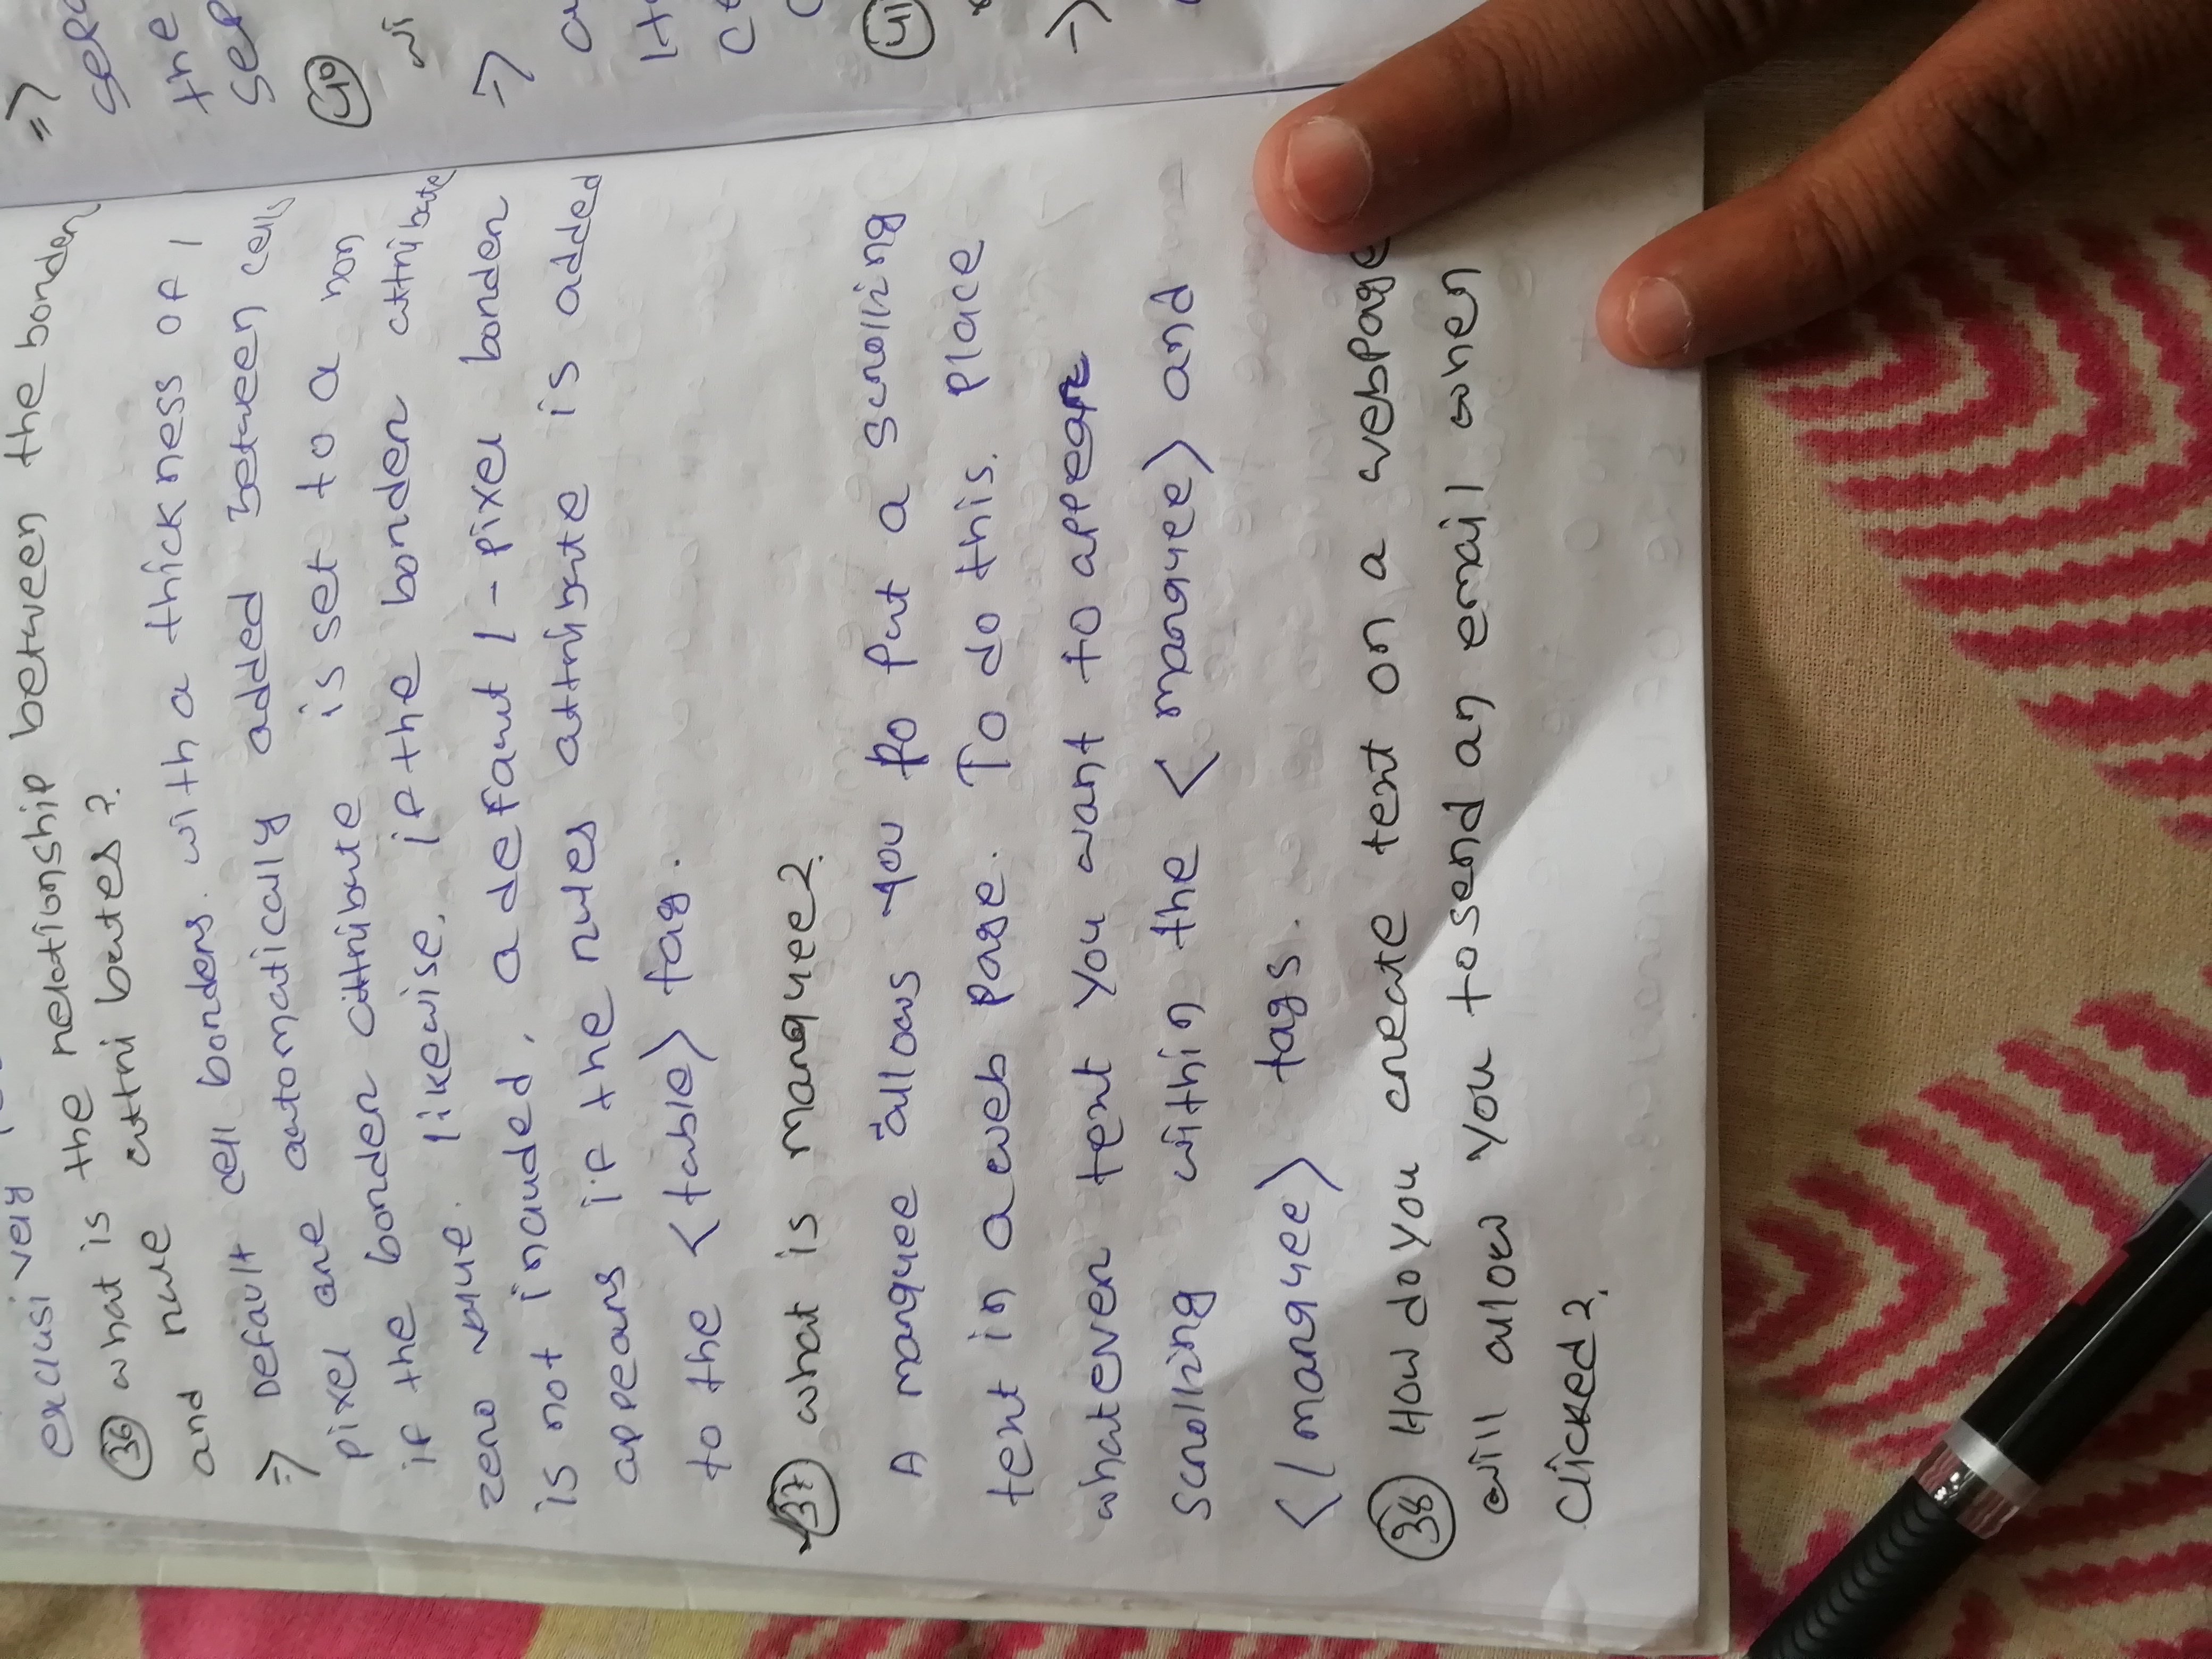 exclusively
(36) what is the relationship between the border
and rule attributes?
=> Default cell borders. with a thickness of 1
pixel are automatically added between cells
if the border attribute is set to a non
zero value. likewise, if the border attribute
is not included, a default 1-pixel border
appears if the rules attribute is added
to the <table> tag.
(37) what is marquee?
A marquee allows you to put a scrolling
text in a web page. To do this, place
whatever text you want to appear
scrolling within the <marquee> and
</marquee> tags.
(38) How do you create text on a webpage
will allow you to send an email when
clicked?
=>
the
(40)
=>
(41)
->